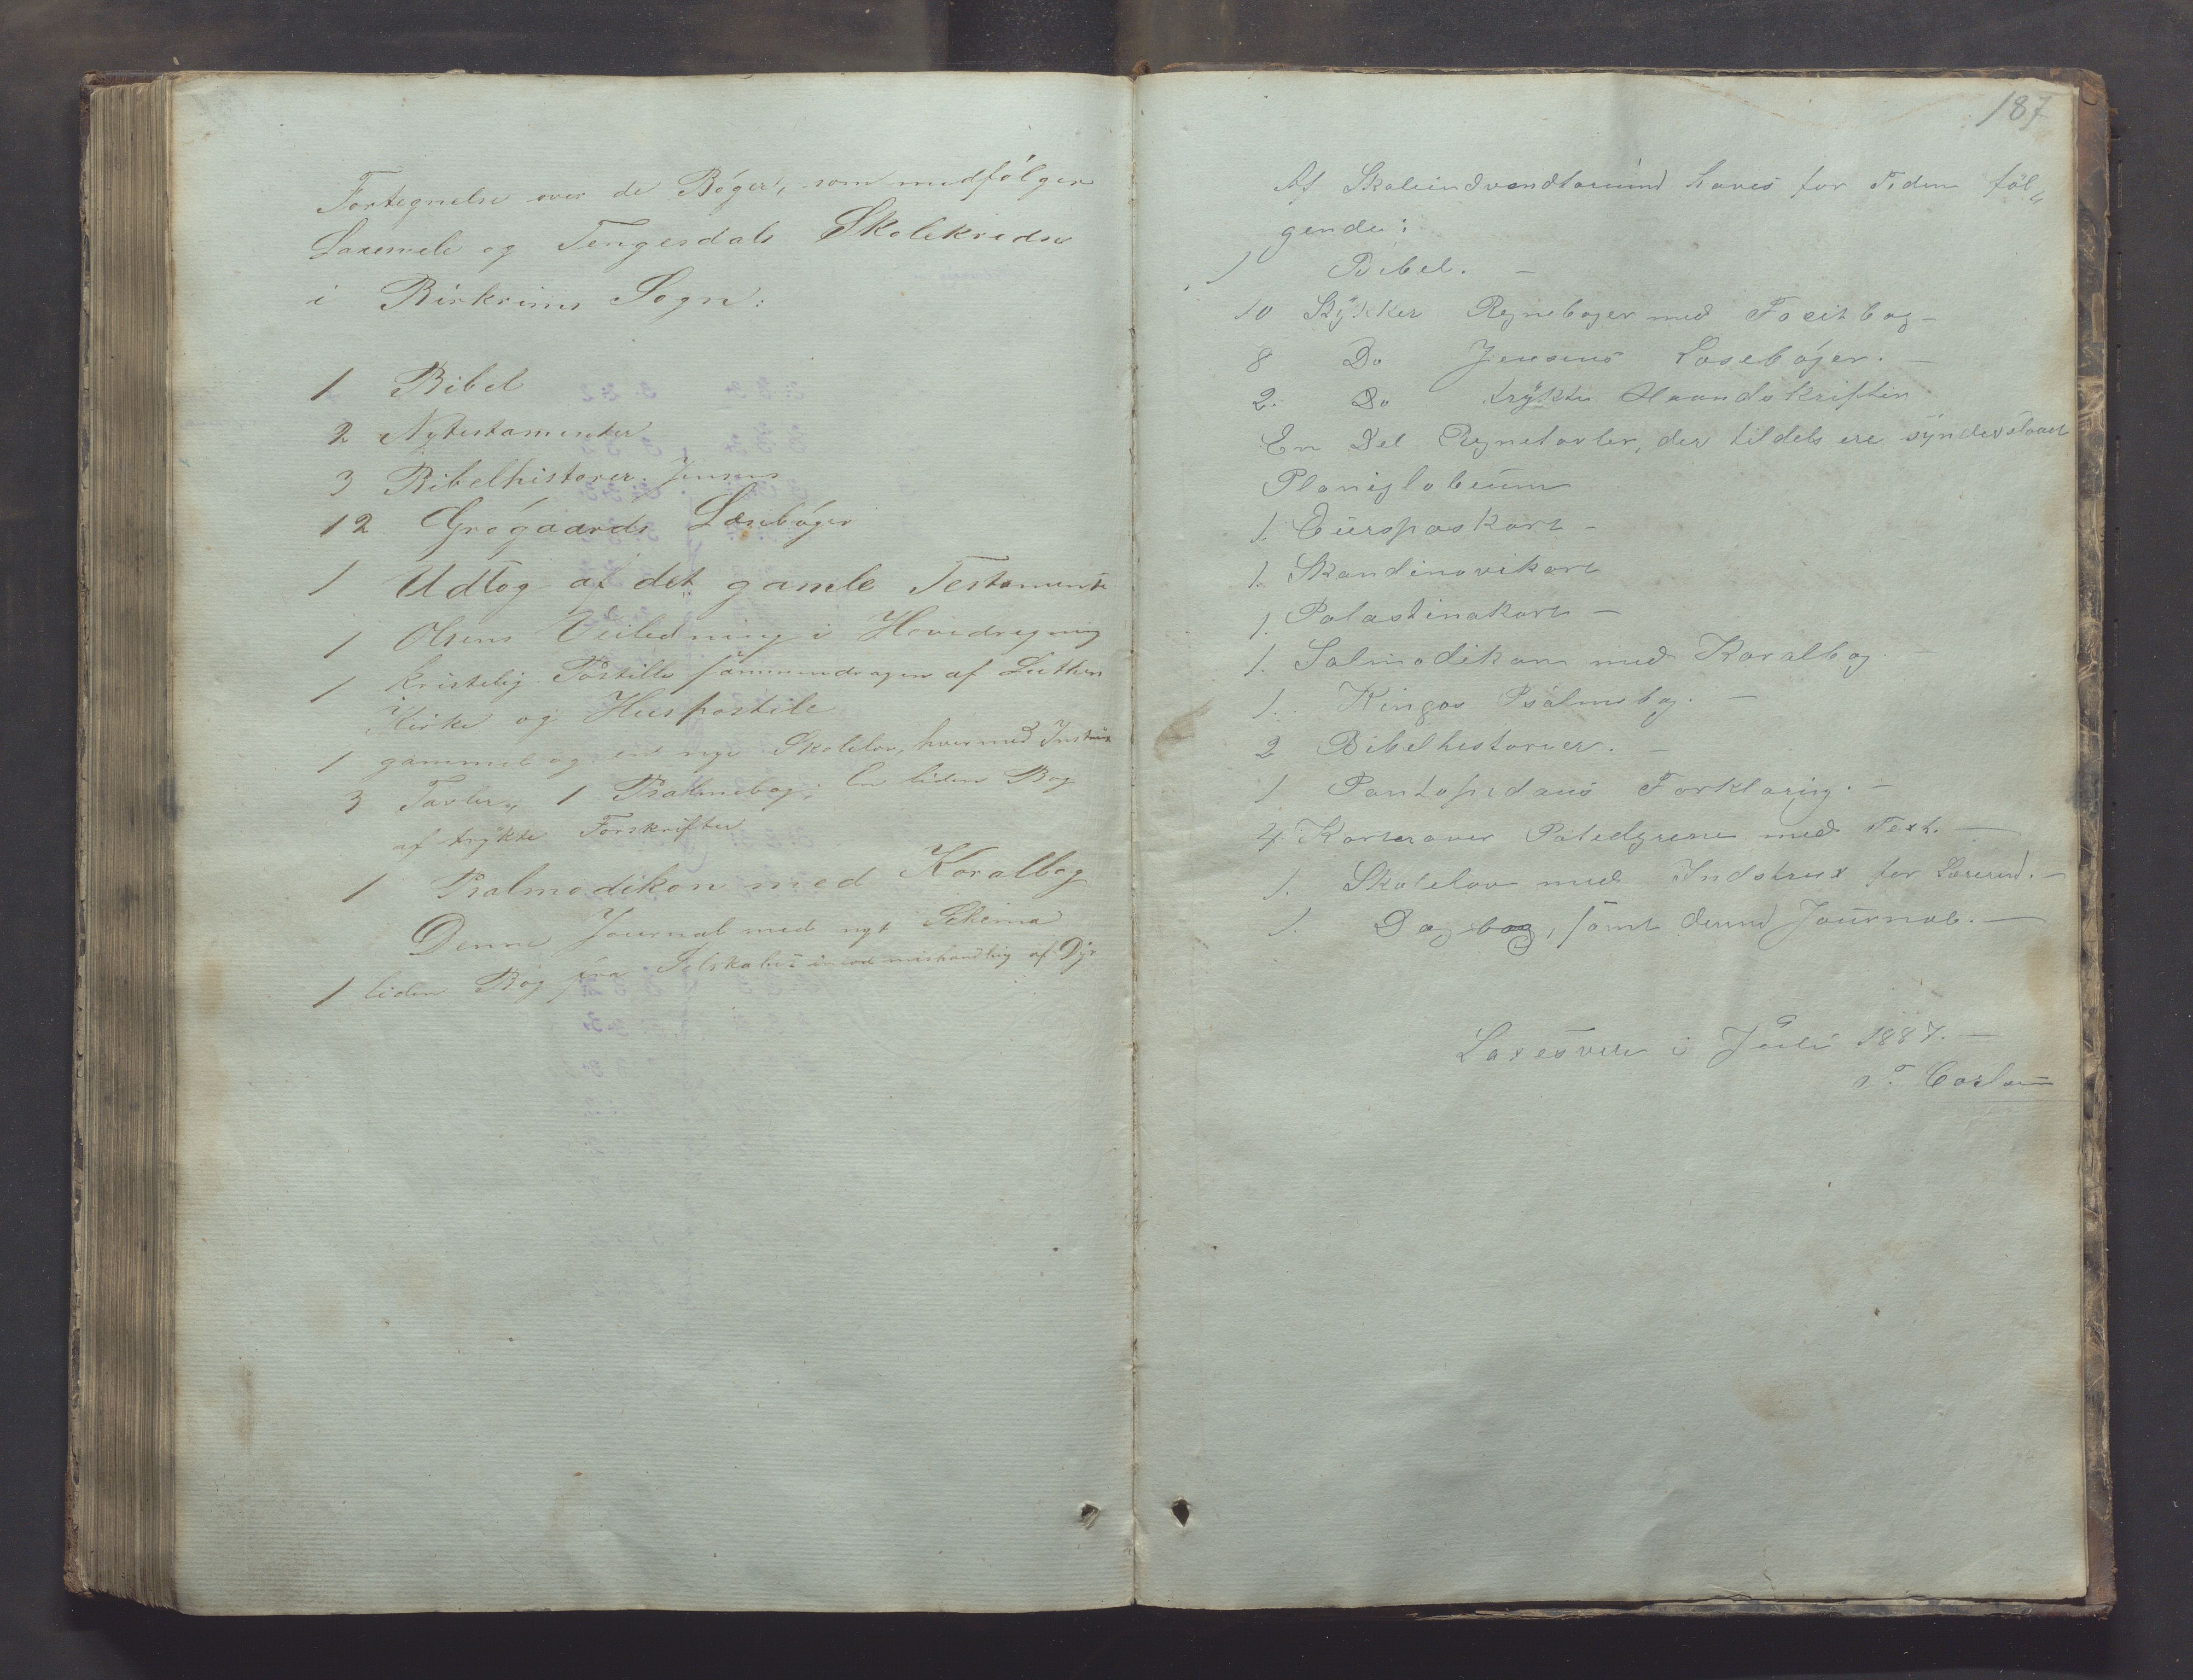 Fortegnelse over de Bøger, som medfølger
Laxemele og Tengesdals Skolekredse
i Birkrims Sogn:
1 Bibel
2 Nytestamenter
3 Bibelhistorer. Jensens
12 Grøgaards Læsebøger
1 Udtog af det gamle Testamente
1 Olsens Veiledning i Hovedregning
1 kristelig Postille sammendragen af Luthers
Kirke og Huspostile
1 gammel og en nye Skolelov, hvermed Instrux
3 Tavler, 1 Psalmebog; En liden Bog
af trykte Forskrifter
1 Psalmodikon med Koralbog
Denne Journal med nyt Schema
1 liden Bog fra Selskabet imod mishandling af Dyr
187
Af Skoleindventarium haves for Tiden föl„
gende:
1 Bibel. –
10 Stykker Regneboger med Facitbog –
8 Do Jensens Læsebøger. –
2. Do trykte Haandskrifter
En Del Regnetavler, der tildels ere synderslaaet
Planiglobeum
1. Europaskart –
1. Skandinavikart
1. Palastinakart –
1. Salmodikon med Koralbog –
1. Kingos Psalmsbog. –
2 Bibelhistorier. –
1 Pontopidans Forklaring. –
4 Karter over med Text. –
1. Skolelov med Indstrux for Læreren. –
1. Dagbog, samt denne Journal. –
i Juli 1887. –
T.